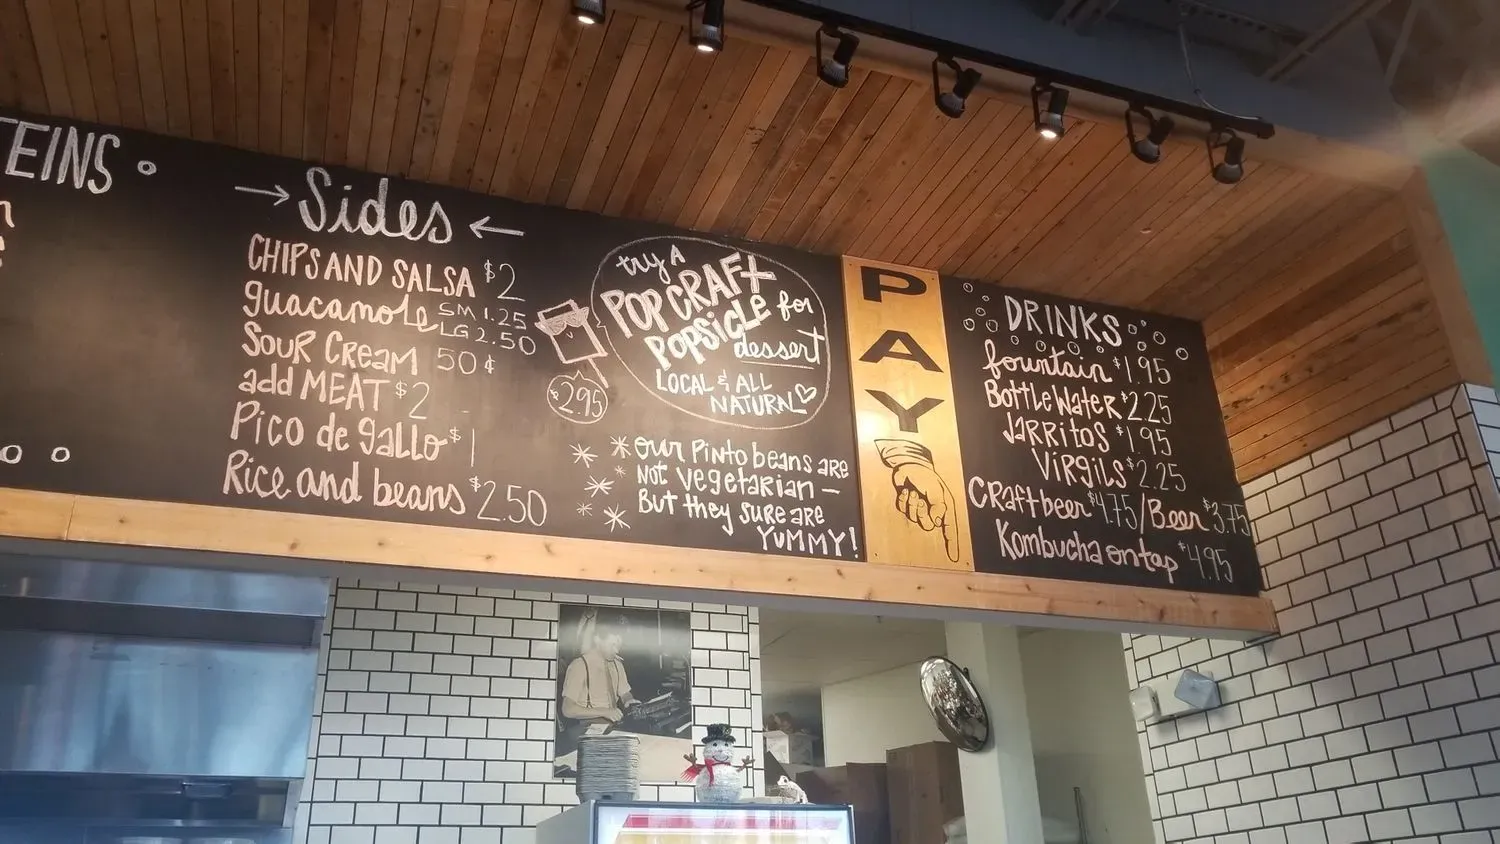 TEINS
→ Sides ←
CHIPS AND SALSA $2
guacamole SM 1.25
LG 2.50
SOUR CREAM 50¢
add MEAT $2
Pico de gallo $1
Rice and beans $2.50
try A
POP CRAFT
POPSICLE for
dessert
LOCAL & ALL
NATURAL
$2.95
*OUR Pinto beans are
Not Vegetarian —
But they sure are
YUMMY!
PAY
DRINKS
fountain $1.95
Bottle Water $2.25
Jarritos $1.95
Virgils $2.25
CRaft beer $4.75/Beer $3.75
Kombucha on tap $4.95